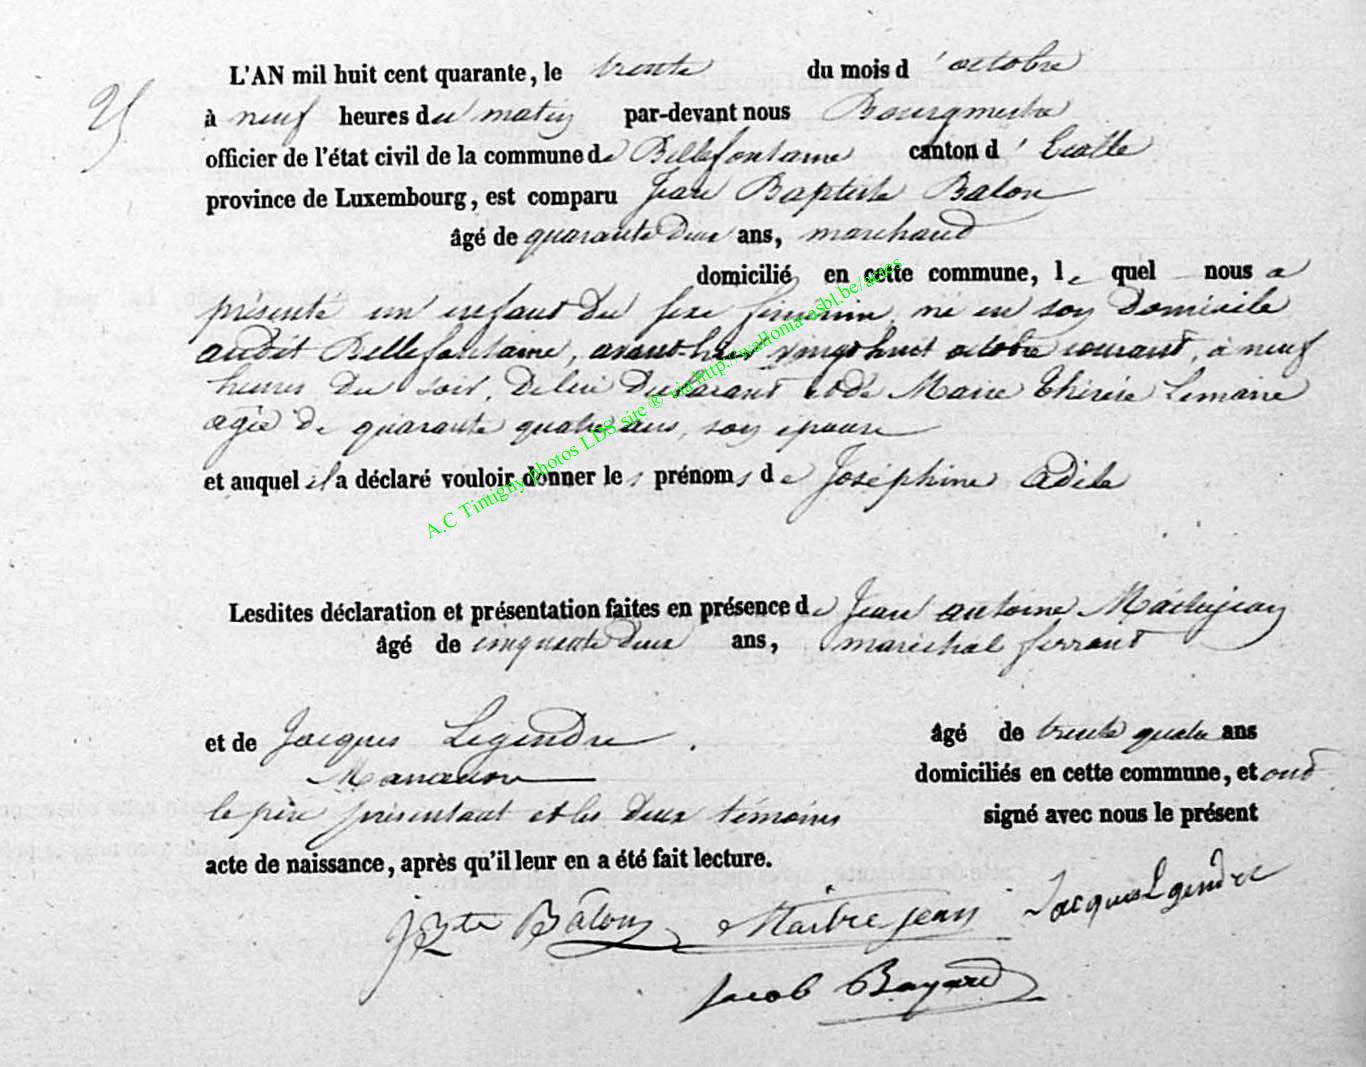 25
L'AN mil huit cent quarante, le trente du mois d'octobre
à neuf heures du matin par-devant nous Bourgmestre
officier de l'état civil de la commune de Bellefontaine canton d'Etalle
province de Luxembourg, est comparu Jean Baptiste Balon
âgé de quarante deux ans, marchand
domicilié en cette commune, lequel nous a
présenté un enfant du sexe féminin, né en son domicile
audit Bellefontaine, avant-hier vingt huit octobre courant, à neuf
heures du soir, de lui déclarant et de Marie Thérèse Lemaire
agée de quarante quatre ans, son épouse
et auquel il a déclaré vouloir donner les prénoms de Joséphine Adile
Lesdites déclaration et présentation faites en présence de Jean antoine
âgé de cinquante deux ans, maréchal ferrant
et de Jacques Legendre. âgé de trente quatre ans
domiciliés en cette commune, et ont
le père présentant et les deux témoins signé avec nous le présent
acte de naissance, après qu'il leur en a été fait lecture.
JBte Bâlon Maitrejean Jacques Lgendre
Jacob Bayard
A.C Tintigny photos LDS site ® via http://wallonia-asbl.be/actes